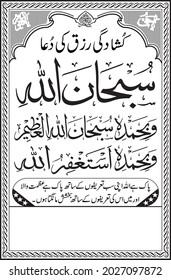 کشادگی رزق کی دُعا
سُبْحَانَ اللهِ
وَبِحَمْدِهٖ سُبْحَانَ اللهِ الْعَظِیْمِ
وَبِحَمْدِهٖ اَسْتَغْفِرُ اللهَ
پاک ہے اللہ اپنی سب تعریفوں کے ساتھ پاک ہے عظمت والا
اور میں اس کی تعریفوں کے ساتھ بخشش مانگتا ہوں۔